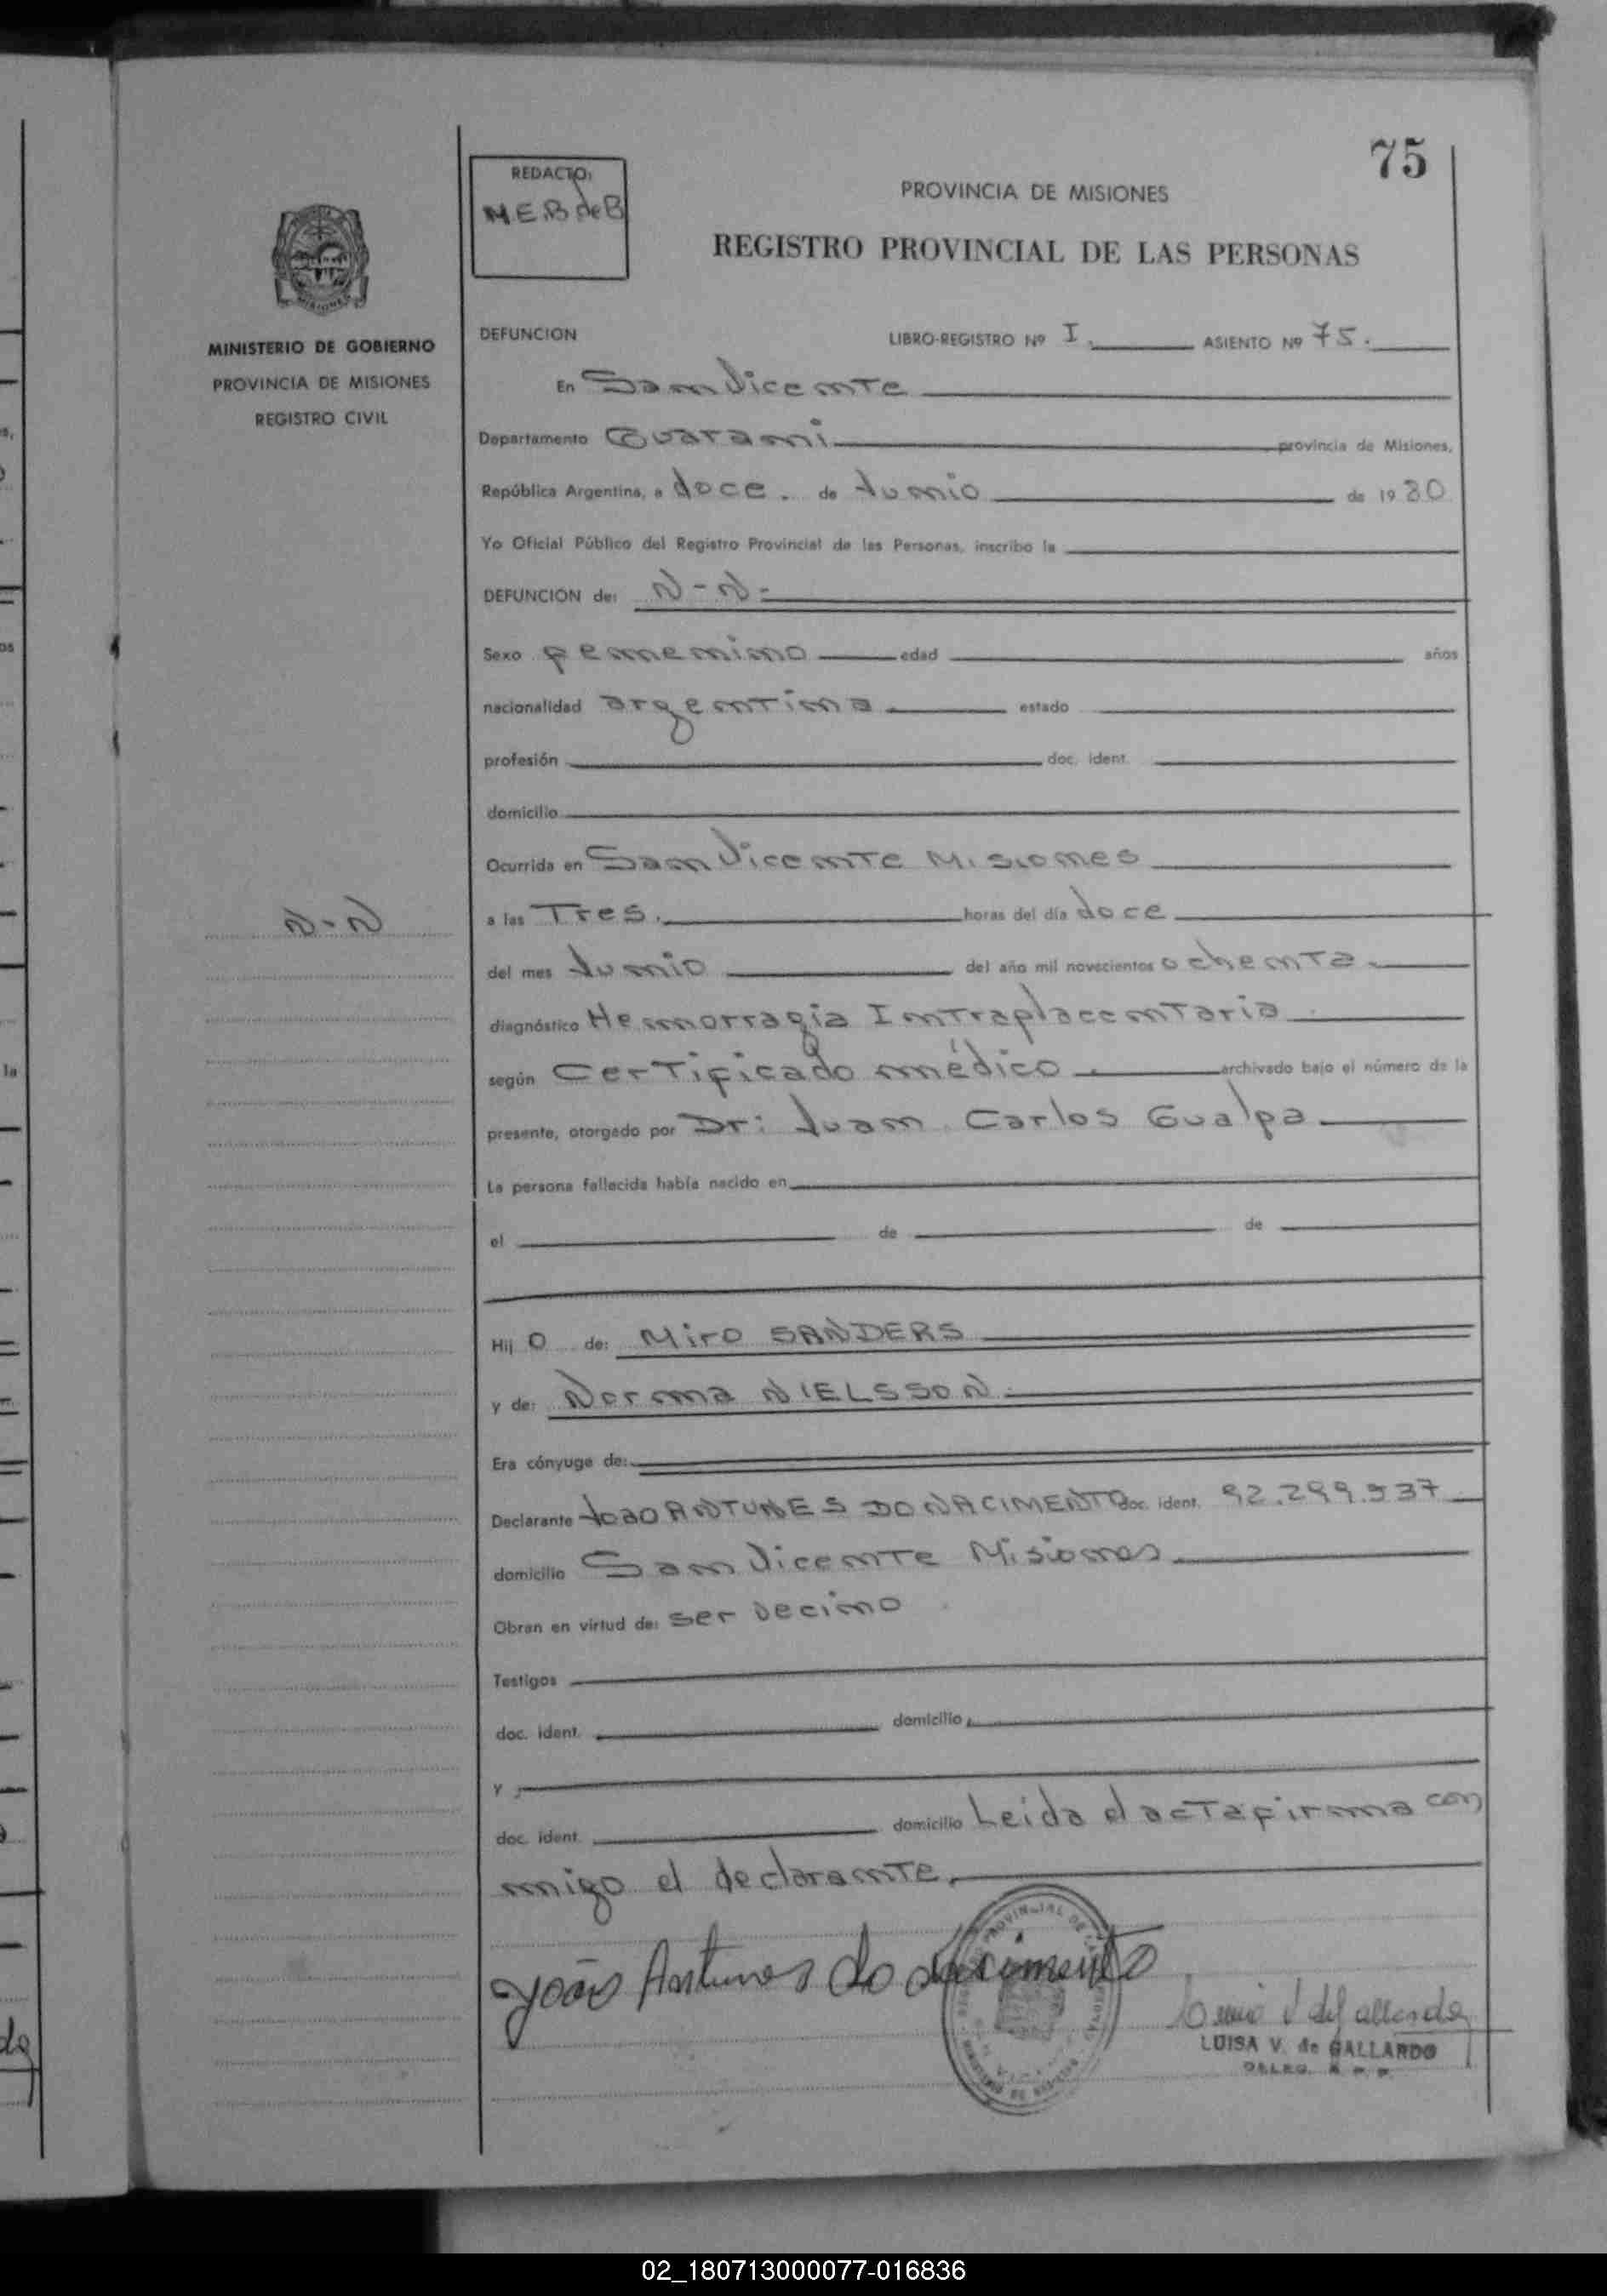 75
REDACTO:
M.E.B de B
PROVINCIA DE MISIONES
REGISTRO PROVINCIAL DE LAS PERSONAS
MINISTERIO DE GOBIERNO
PROVINCIA DE MISIONES
REGISTRO CIVIL
DEFUNCION LIBRO-REGISTRO Nº I. ASIENTO Nº 75.
En San Vicente
Departamento Guarani provincia de Misiones,
República Argentina, a doce. de Junio de 19 80
Yo Oficial Público del Registro Provincial de las Personas, inscribo la
DEFUNCION de: N-N-
Sexo femenino edad años
nacionalidad argentina estado
profesión doc. ident.
domicilio
Ocurrida en San Vicente Misiones
N-N
a las Tres. horas del día doce
del mes Junio del año mil novecientos ochenta.
diagnóstico Hemorragia Intraplacentaria
según Certificado médico archivado bajo el número de la
presente, otorgado por Dr: Juan Carlos Gualpa
La persona fallecida había nacido en
el de de
Hij O de: Miro SANDERS
y de: Norma NIELSSON
Era cónyuge de:
Declarante Joao ANTUNES DO NACIMENTO doc. ident. 92.299.937
domicilio San Vicente Misiones
Obran en virtud de: ser vecino
Testigos
doc. ident. domicilio
y
doc. ident. domicilio Leida el acta firma con
migo el declarante.
João Antunes do Nacimento
LUISA V. de GALLARDO
DELEG. R. P. P.
02_180713000077-016836